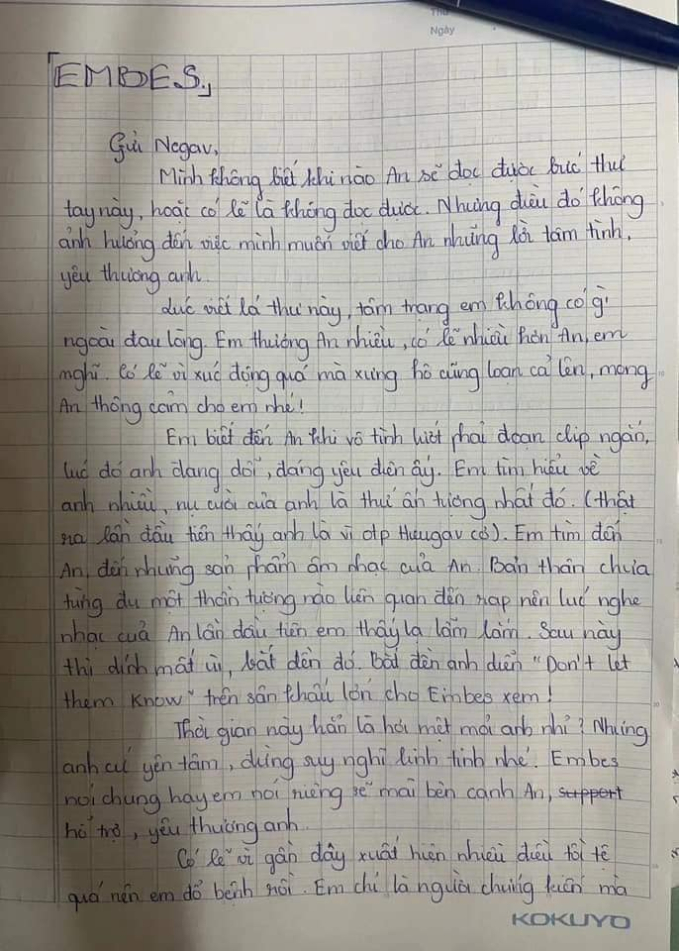 Thứ
Ngày
「EMBES」
Gửi Negav,
Mình không biết khi nào An sẽ đọc được bức thư
tay này, hoặc có lẽ là không đọc được. Nhưng điều đó không
ảnh hưởng đến việc mình muốn viết cho An những lời tâm tình,
yêu thương anh.
Lúc viết lá thư này, tâm trạng em không có gì
ngoài đau lòng. Em thương An nhiều, có lẽ nhiều hơn An, em
nghĩ. Có lẽ vì xúc động quá mà xưng hô cũng loạn cả lên, mong
An thông cảm cho em nhé!
Em biết đến An khi vô tình lướt phải đoạn clip ngắn,
lúc đó anh đang dỗi, đáng yêu điên ấy. Em tìm hiểu về
anh nhiều, nụ cười của anh là thứ ấn tượng nhất đó. (thật
ra lần đầu tiên thấy anh là vì otp Hưugav cơ). Em tìm đến
An, đến những sản phẩm âm nhạc của An. Bản thân chưa
từng đu một thần tượng nào liên quan đến rap nên lúc nghe
nhạc của An lần đầu tiên em thấy lạ lắm lắm. Sau này
thì dính mất ùi, bắt đền đó. Bắt đền anh diễn "Don't let
them know" trên sân khấu lớn cho Embes xem!
Thời gian này hẳn là hơi mệt mỏi anh nhỉ? Nhưng
anh cứ yên tâm, đừng suy nghĩ linh tinh nhé. Embes
nói chung hay em nói riêng sẽ mãi bên cạnh An, support
hỗ trợ, yêu thương anh.
Có lẽ vì gần đây xuất hiện nhiều điều tồi tệ
quá nên em đổ bệnh rồi. Em chỉ là người chứng kiến mà
KOKUYO